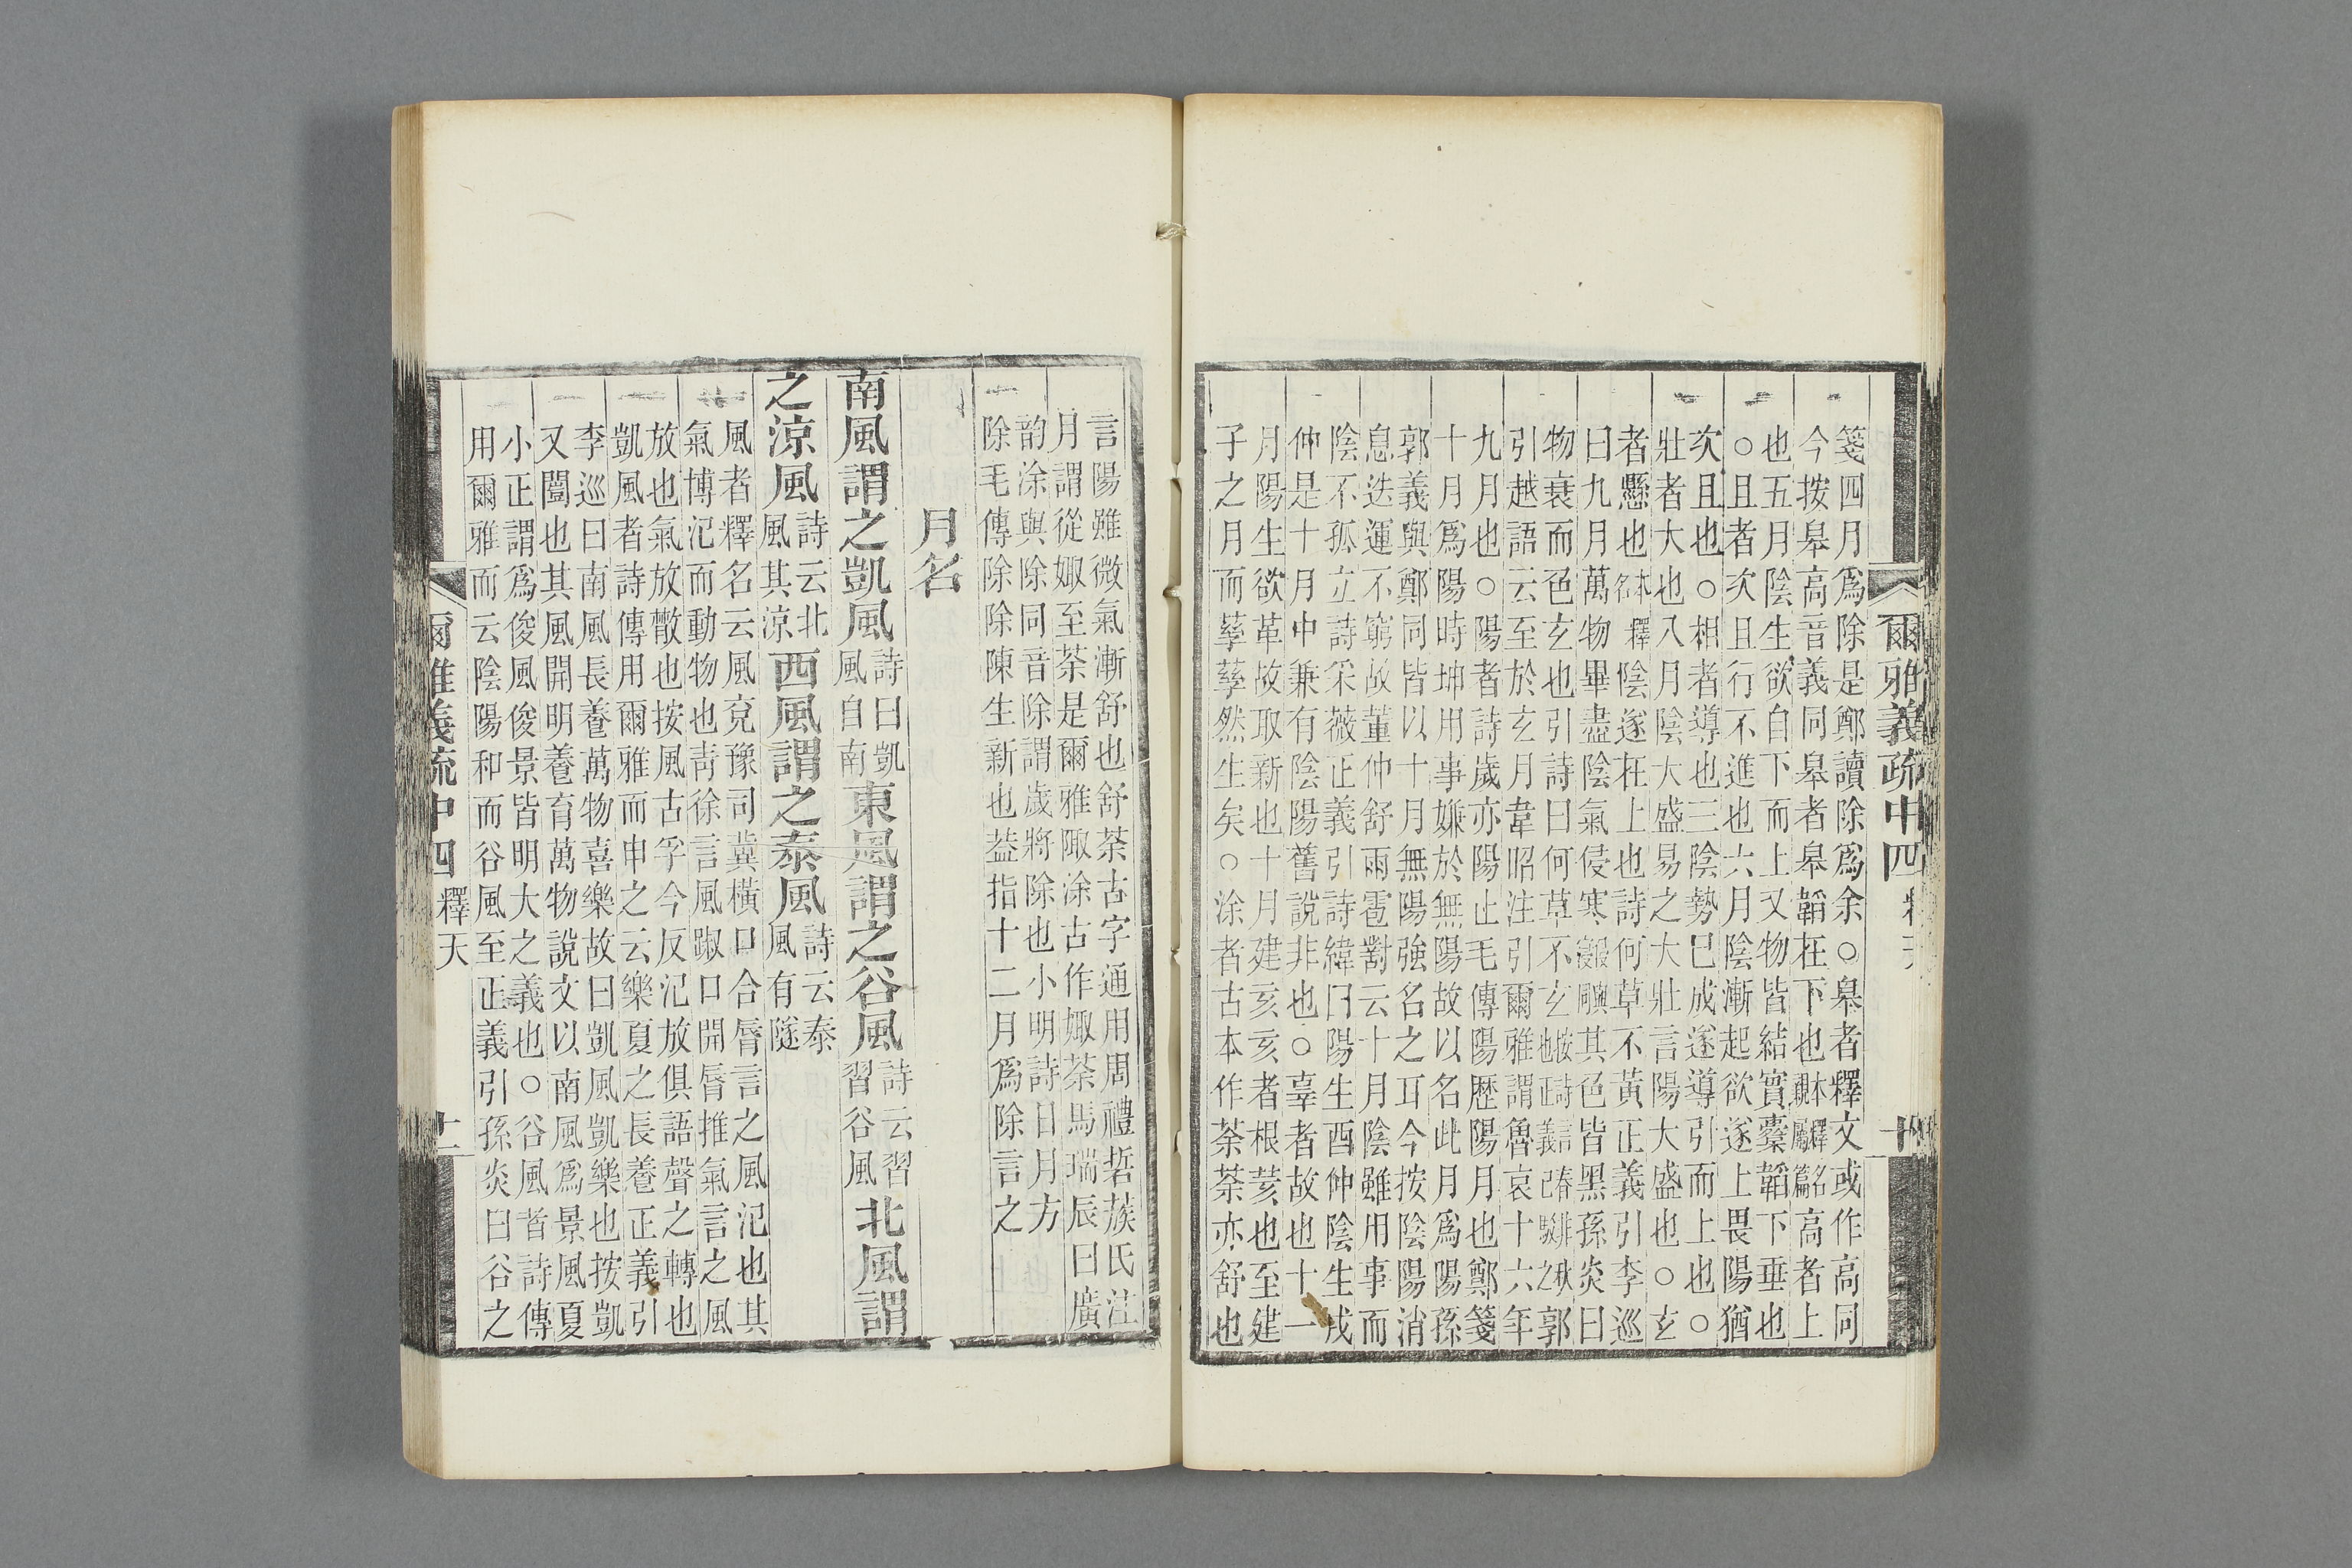 爾雅義疏中四
箋四月爲除是鄭讀除爲余○皋者釋文或作高同
今按皋高音義同皋者皋韜在下也本釋名親屬篇高者上
也五月陰生欲自下而上又物皆結實櫜韜下垂也
○且者次且行不進也六月陰漸起欲遂上畏陽猶
次且也○相者導也三陰勢已成遂導引而上也○
壯者大也八月陰大盛易之大壯言陽大盛也○玄
者懸也本釋名陰遂在上也詩何草不黃正義引李巡
曰九月萬物畢盡陰氣侵寒其色皆黑孫炎曰
物衰而色玄也引詩曰何草不玄郭
引越語云至於玄月韋昭注引爾雅謂魯哀十六年
九月也○陽者詩歲亦陽止毛傳陽歷陽月也鄭箋
十月爲陽時坤用事嫌於無陽故以名此月爲陽孫
郭義與鄭同皆以十月無陽強名之耳今按陰陽消
息迭運不窮故董仲舒雨雹對云十月陰雖用事而
陰不孤立詩采薇正義引詩緯曰陽生酉仲陰生戌
仲是十月中兼有陰陽舊說非也○辜者故也十一
月陽生欲革故取新也十月建亥亥者根荄也至建
子之月而孳孳然生矣○涂者古本作荼荼亦舒也
言陽雖微氣漸舒也舒荼古字通用周禮硩蔟氏注
月謂從娵至荼是爾雅陬涂古作娵荼馬瑞辰曰廣
韵涂與除同音除謂歲將除也小明詩日月方
除毛傳除除陳生新也葢指十二月爲除言之
月名
南風謂之凱風詩曰凱風自南東風謂之谷風詩云習習谷風北風謂
之涼風詩云北風其涼西風謂之泰風詩云泰風有隧
風者釋名云風兗豫司冀橫口合脣言之風氾也其
氣博氾而動物也靑徐言風踧口開脣推氣言之風
放也氣放散也按風古孚今反氾放俱語聲之轉也
凱風者詩傳用爾雅而申之云樂夏之長養正義引
李巡曰南風長養萬物喜樂故曰凱風凱樂也按凱
又闓也其風開明養育萬物說文以南風爲景風夏
小正謂爲俊風俊景皆明大之義也○谷風者詩傳
用爾雅而云陰陽和而谷風至正義引孫炎曰谷之
爾雅義疏中四 釋天